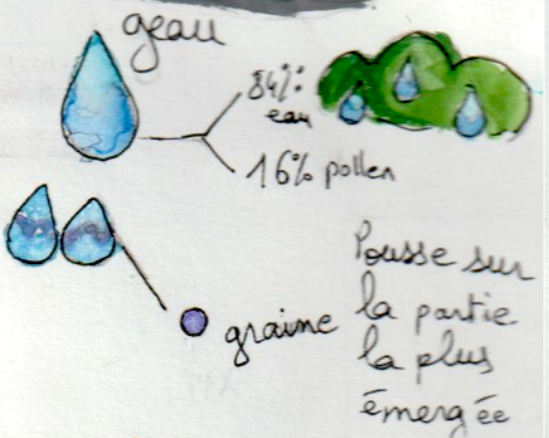 geau
84%
eau
16% pollen
graine
Pousse sur
la partie
la plus
émergée